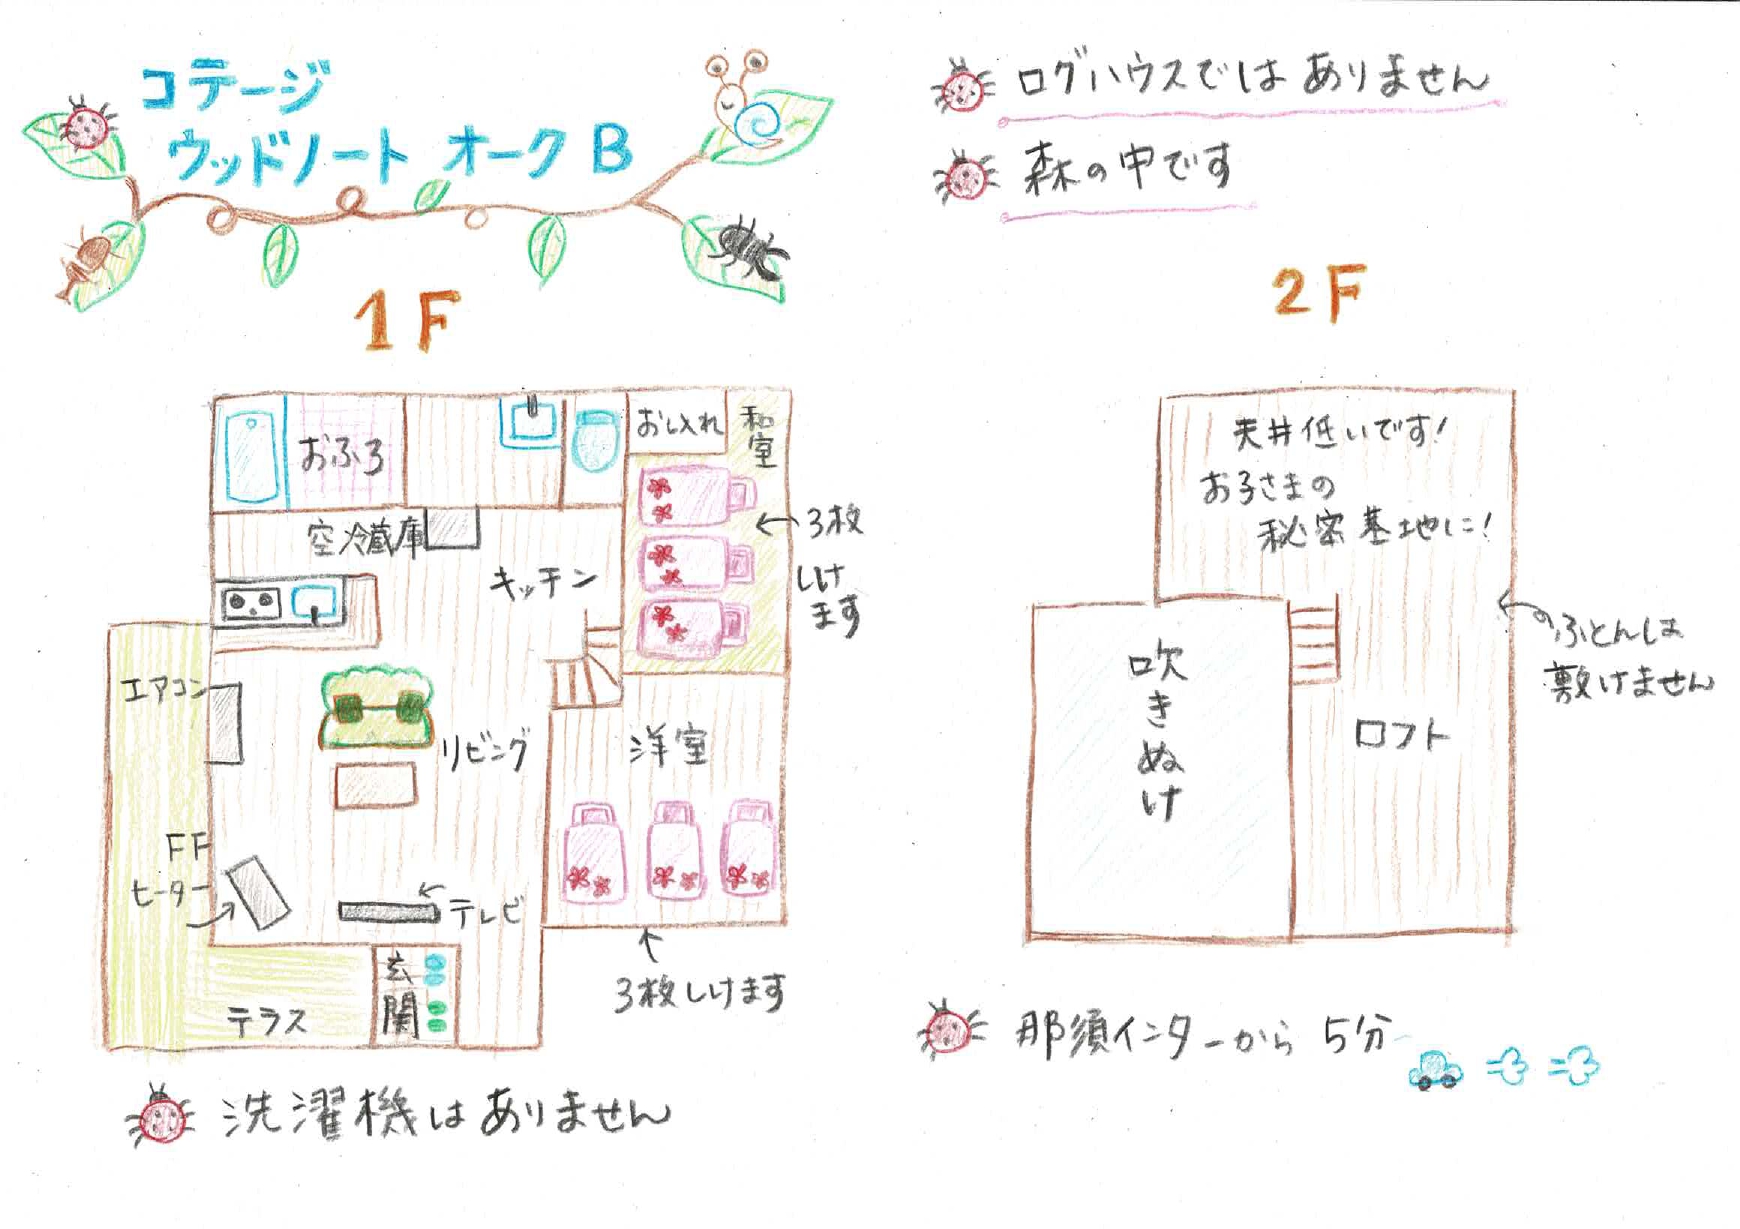 コテージ
ウッドノート オーク B
1F
おふろ
おし入れ
和室
空冷蔵庫
キッチン
3枚
しけ
ます
エアコン
リビング
洋室
FF
ヒーター
テレビ
玄関
テラス
3枚しけます
洗濯機はありません
ログハウスではありません
森の中です
2F
天井低いです!
お子さまの
秘密基地に!
吹きぬけ
ロフト
ふとんは
敷けません
那須インターから 5分